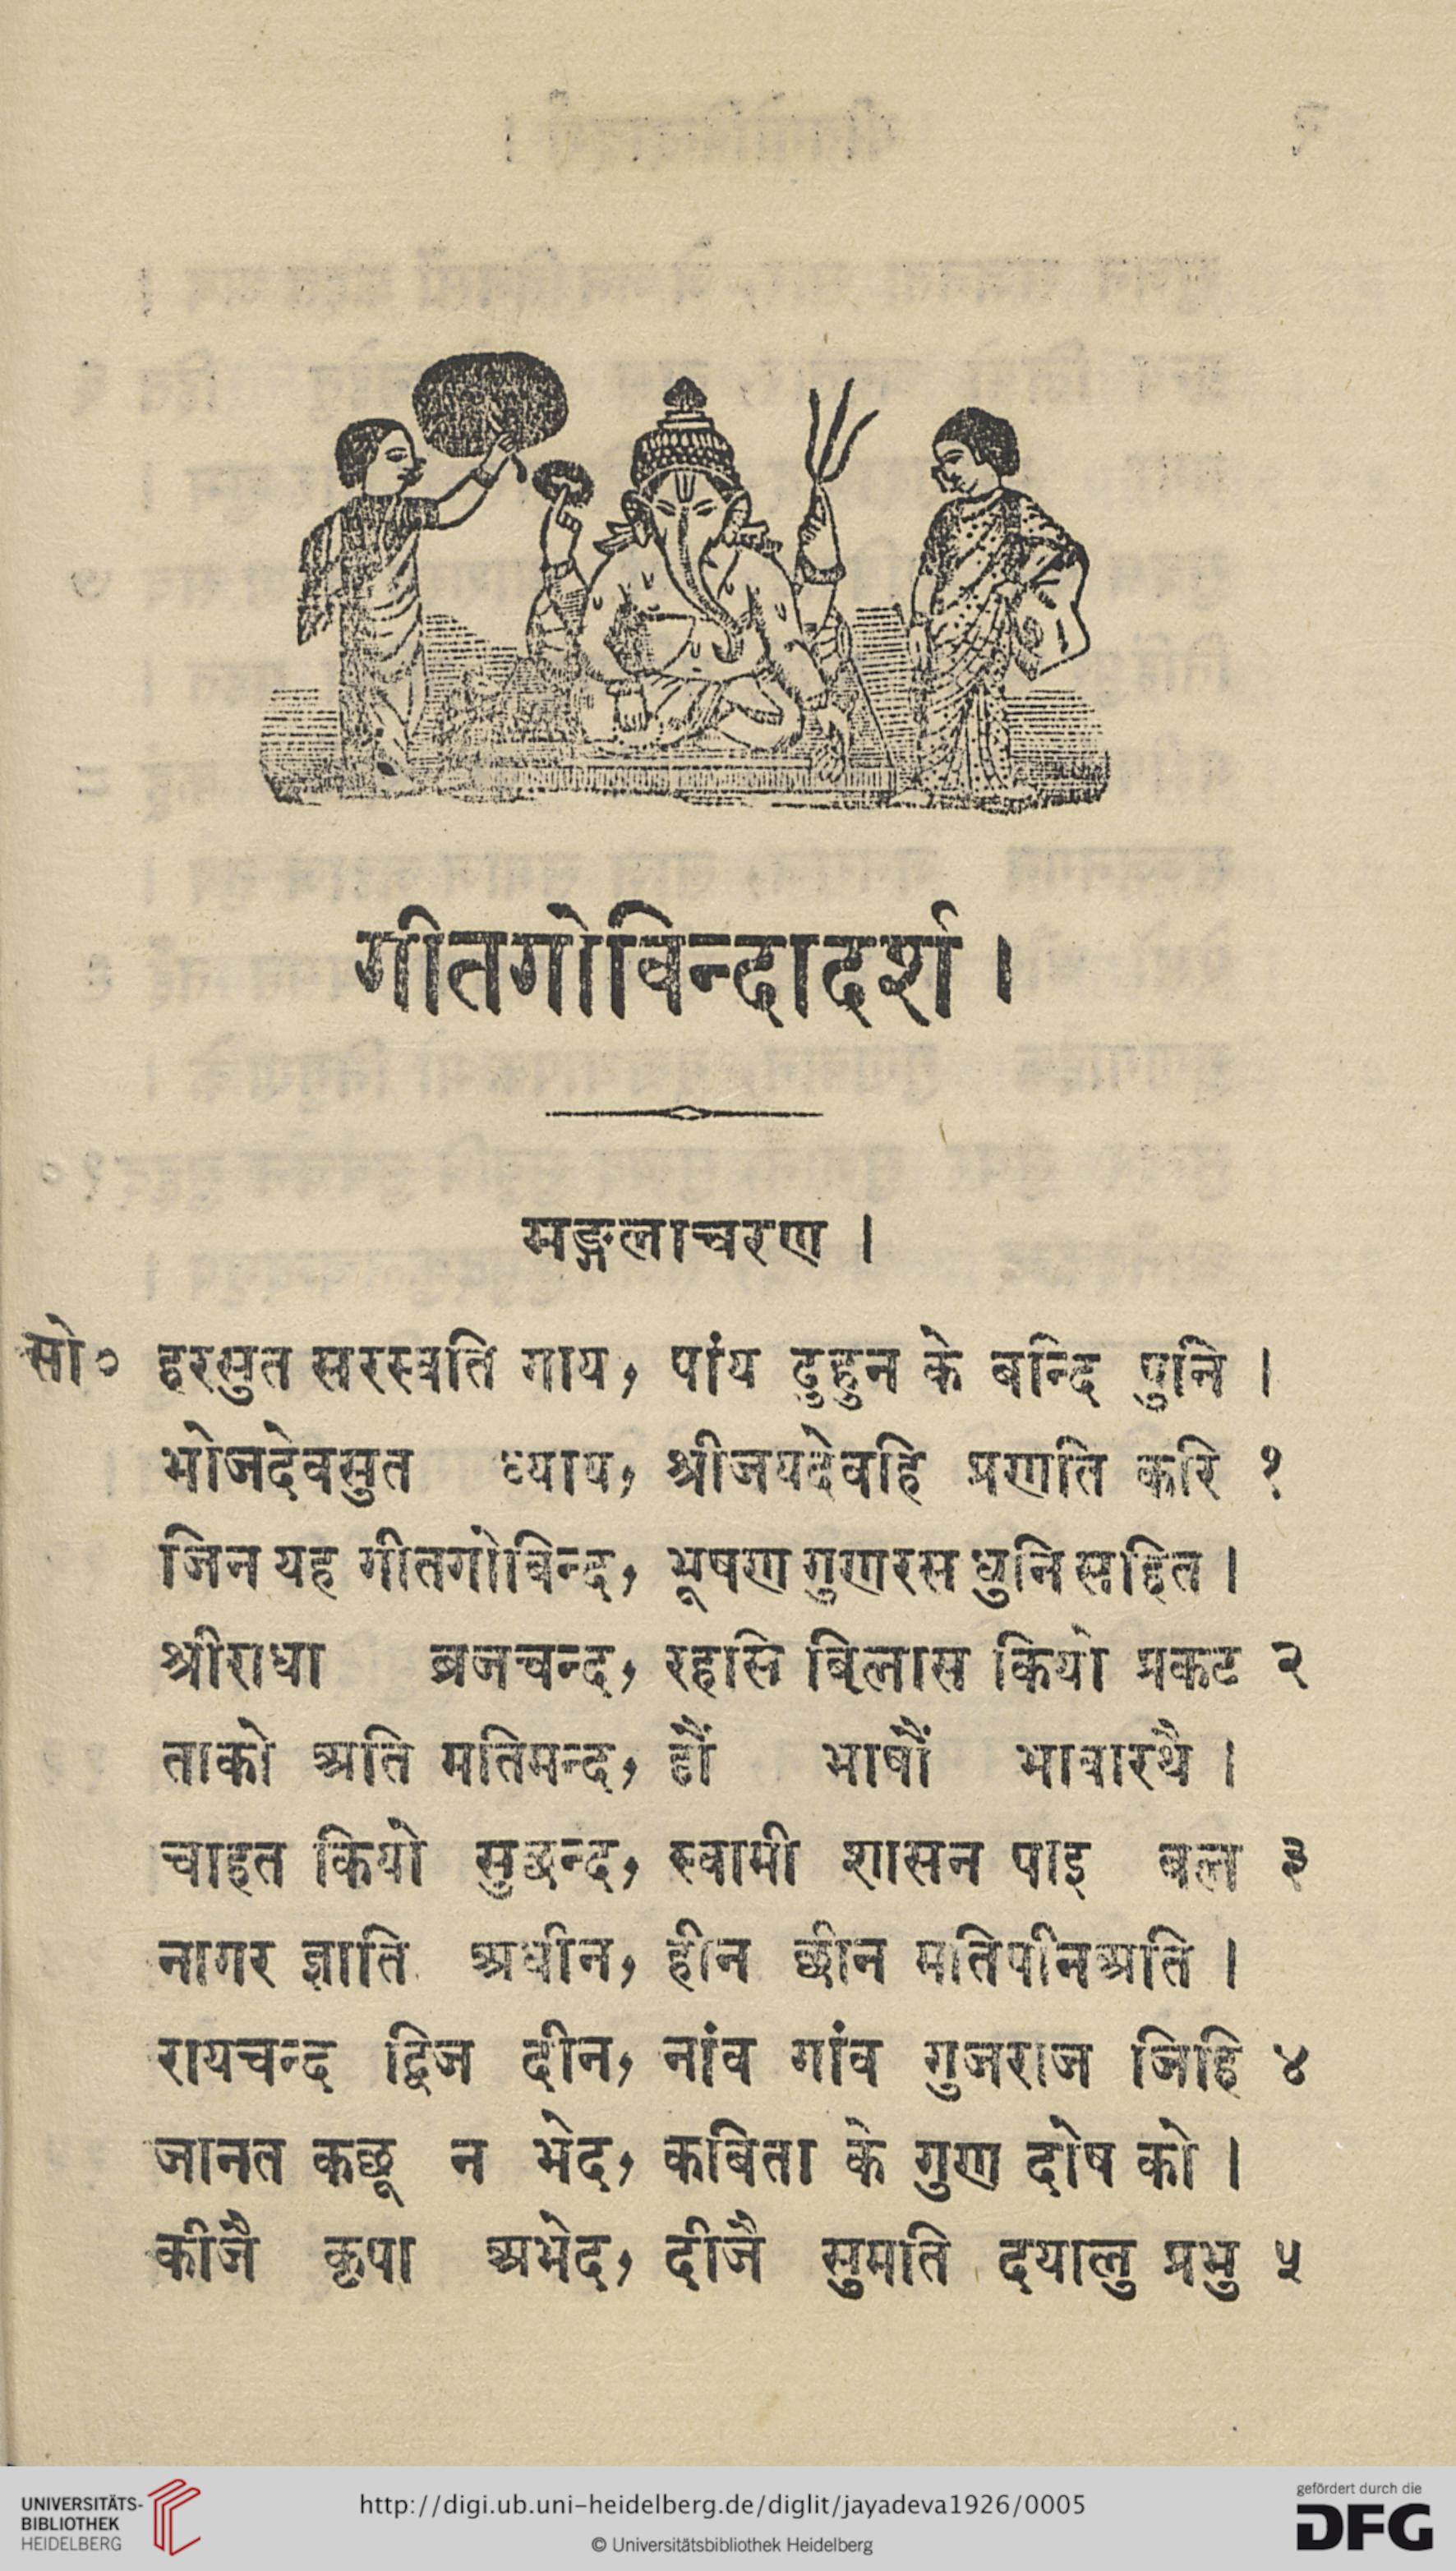 गीतगोविन्दादर्श ।
मङ्गलाचरण ।
सो० हरसुत सरस्वति गाय, पांय दुहुन के बन्दि पुनि ।
भोजदेवसुत ध्याय, श्रीजयदेवहि प्रणति करि १
जिन यह गीतगोबिन्द, भूषण गुणरस धुनि सहित ।
श्रीराधा ब्रजचन्द, रहसि बिलास कियो प्रकट २
ताको अति मतिमन्द, हौं भाषौं भावारथै ।
चाहत कियो सुछन्द, स्वामी शासन पाइ बल ३
नागर ज्ञाति अधीन, हीन छीन मतिपीनअति ।
रायचन्द द्विज दीन, नांव गांव गुजराज जिहि ४
जानत कछू न भेद, कबिता के गुण दोष को ।
कीजै कृपा अभेद, दीजै सुमति दयालु प्रभु ५
UNIVERSITÄTS-
BIBLIOTHEK
HEIDELBERG
http://digi.ub.uni-heidelberg.de/diglit/jayadeva1926/0005
© Universitätsbibliothek Heidelberg
gefördert durch die
DFG